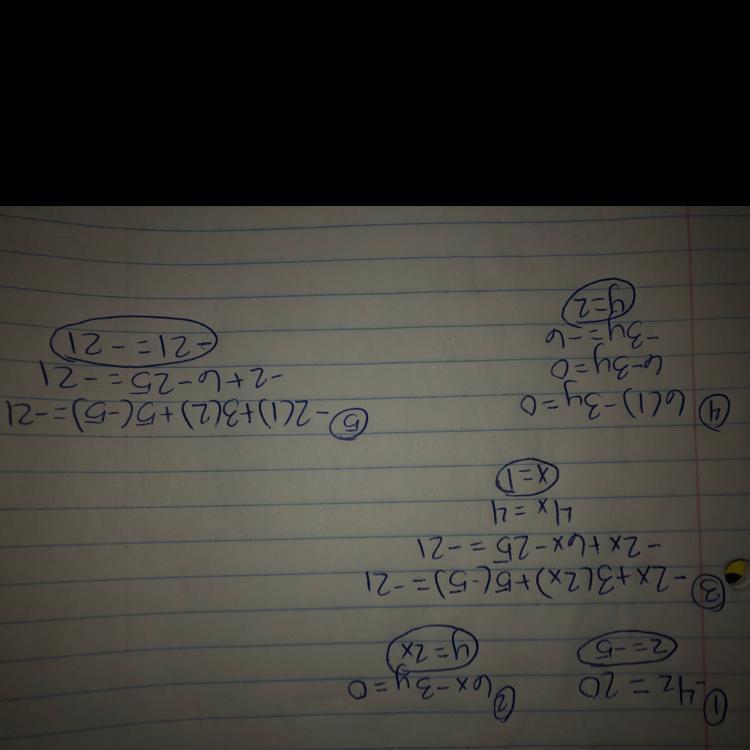 ① -4z = 20
z = -5
② 6x - 3y = 0
y = 2x
③ -2x + 3(2x) + 5(-5) = -21
-2x + 6x - 25 = -21
4x = 4
x = 1
④ 6(1) - 3y = 0
6 - 3y = 0
-3y = -6
y = 2
⑤ -2(1) + 3(2) + 5(-5) = -21
-2 + 6 - 25 = -21
-21 = -21